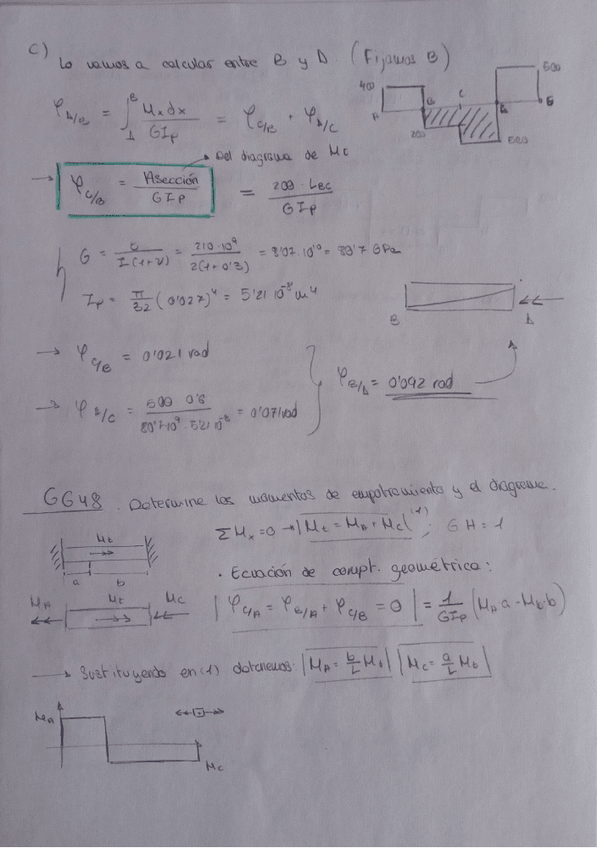 c) Lo vamos a calcular entre B y D. (Fijamos B)
400
A
B
C
E
200
500
500
φ_D/B = ∫ Mx dx / GIp = φ_C/B + φ_D/C
Del diagrama de Mc
→ φ_C/B = Asección / GIp = 200 · L_BC / GIp
G = E / 2(1+ν) = 210·10⁹ / 2(1+0'3) = 8'07·10¹⁰ = 80'7 GPa
Ip = π/32 (0'027)⁴ = 5'21 10⁻⁸ m⁴
B
→ φ_C/B = 0'021 rad
φ_B/D = 0'092 rad
→ φ_D/C = 500 · 0'6 / 80'7·10⁹ · 5'21 10⁻⁸ = 0'071 rad
6648. Determine los momentos de empotramiento y el diagrama.
ΣMx = 0 → Mt = MA + Mc (1); GH = 1
Mt
a b
· Ecuación de compt. geométrica:
MA Mt Mc
φ_C/A = φ_B/A + φ_C/B = 0 = 1/GIp (MA a - Mb·b)
→ Sustituyendo en (1) obtenemos: MA = b/L Mt Mc = a/L Mt
MA
Mc